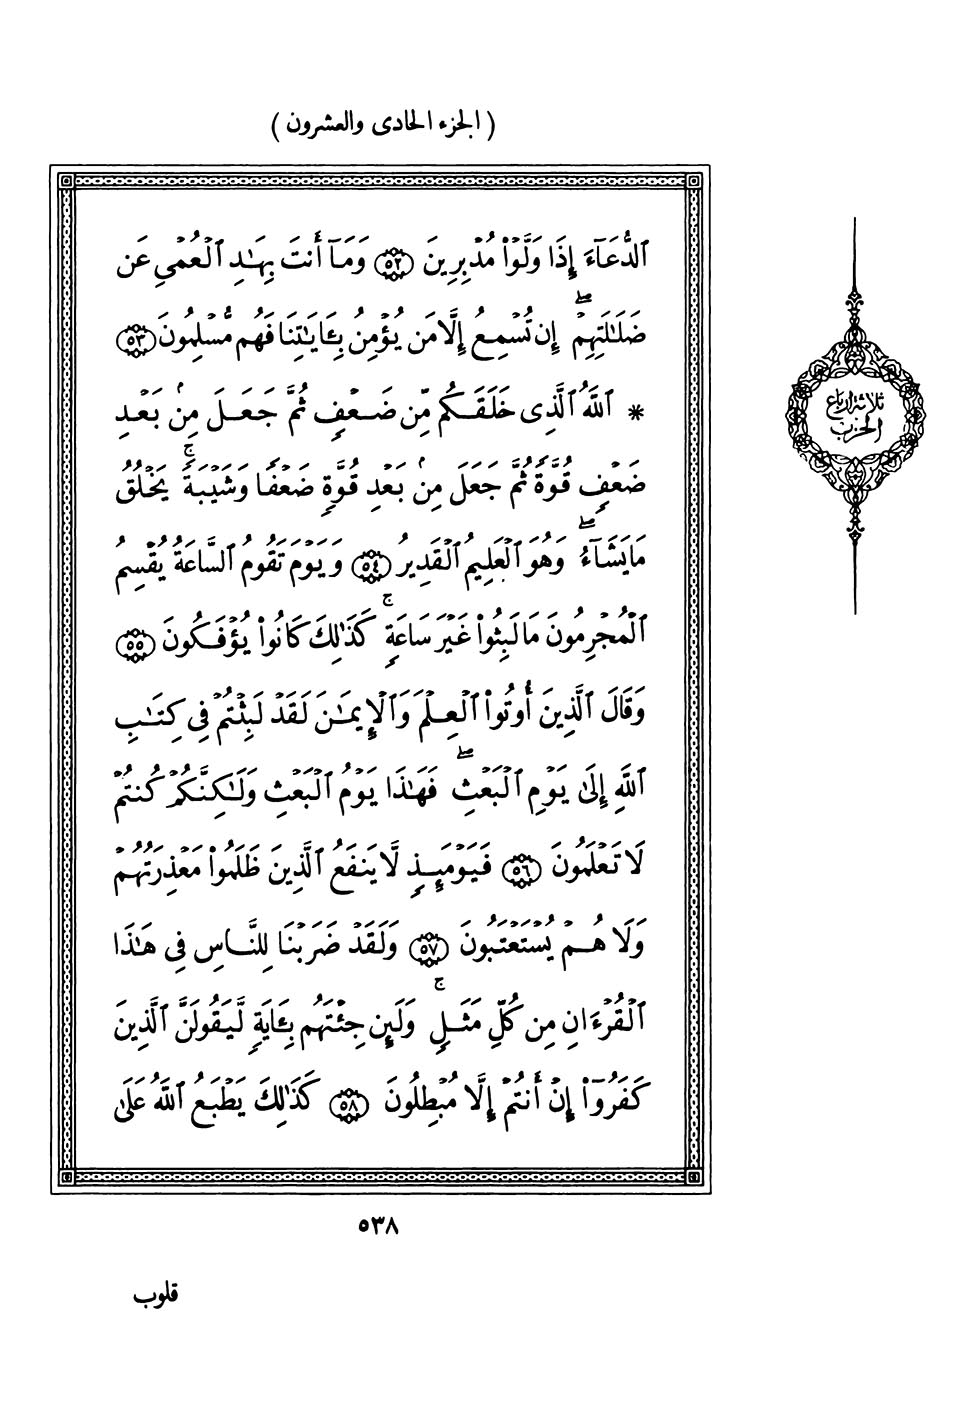 ( الجزء الحادى والعشرون )
ٱلدُّعَآءَ إِذَا وَلَّوْا۟ مُدْبِرِينَ ٥٢ وَمَآ أَنتَ بِهَـٰدِ ٱلْعُمْىِ عَن
ضَلَـٰلَتِهِمْ ۖ إِن تُسْمِعُ إِلَّا مَن يُؤْمِنُ بِـَٔايَـٰتِنَا فَهُم مُّسْلِمُونَ ٥٣
* ٱللَّهُ ٱلَّذِى خَلَقَكُم مِّن ضَعْفٍ ثُمَّ جَعَلَ مِنۢ بَعْدِ
ضَعْفٍ قُوَّةً ثُمَّ جَعَلَ مِنۢ بَعْدِ قُوَّةٍ ضَعْفًا وَشَيْبَةً ۚ يَخْلُقُ
مَا يَشَآءُ ۖ وَهُوَ ٱلْعَلِيمُ ٱلْقَدِيرُ ٥٤ وَيَوْمَ تَقُومُ ٱلسَّاعَةُ يُقْسِمُ
ٱلْمُجْرِمُونَ مَا لَبِثُوا۟ غَيْرَ سَاعَةٍ ۚ كَذَٰلِكَ كَانُوا۟ يُؤْفَكُونَ ٥٥
وَقَالَ ٱلَّذِينَ أُوتُوا۟ ٱلْعِلْمَ وَٱلْإِيمَـٰنَ لَقَدْ لَبِثْتُمْ فِى كِتَـٰبِ
ٱللَّهِ إِلَىٰ يَوْمِ ٱلْبَعْثِ ۖ فَهَـٰذَا يَوْمُ ٱلْبَعْثِ وَلَـٰكِنَّكُمْ كُنتُمْ
لَا تَعْلَمُونَ ٥٦ فَيَوْمَئِذٍ لَّا يَنفَعُ ٱلَّذِينَ ظَلَمُوا۟ مَعْذِرَتُهُمْ
وَلَا هُمْ يُسْتَعْتَبُونَ ٥٧ وَلَقَدْ ضَرَبْنَا لِلنَّاسِ فِى هَـٰذَا
ٱلْقُرْءَانِ مِن كُلِّ مَثَلٍ ۚ وَلَئِن جِئْتَهُم بِـَٔايَةٍ لَّيَقُولَنَّ ٱلَّذِينَ
كَفَرُوٓا۟ إِنْ أَنتُمْ إِلَّا مُبْطِلُونَ ٥٨ كَذَٰلِكَ يَطْبَعُ ٱللَّهُ عَلَىٰ
ثلاثة ارباع
الحزب
٥٣٨
قلوب